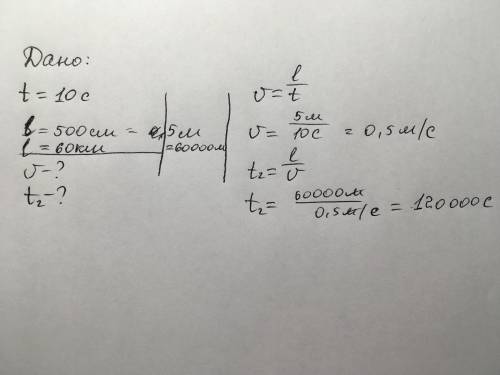 Дано:
t = 10 с
l = 500 см = 5 м
l = 60 км = 60000 м
v - ?
t₂ - ?
v = l/t
v = 5 м/10 с = 0,5 м/с
t₂ = l/v
t₂ = 60000 м/0,5 м/с = 120000 с